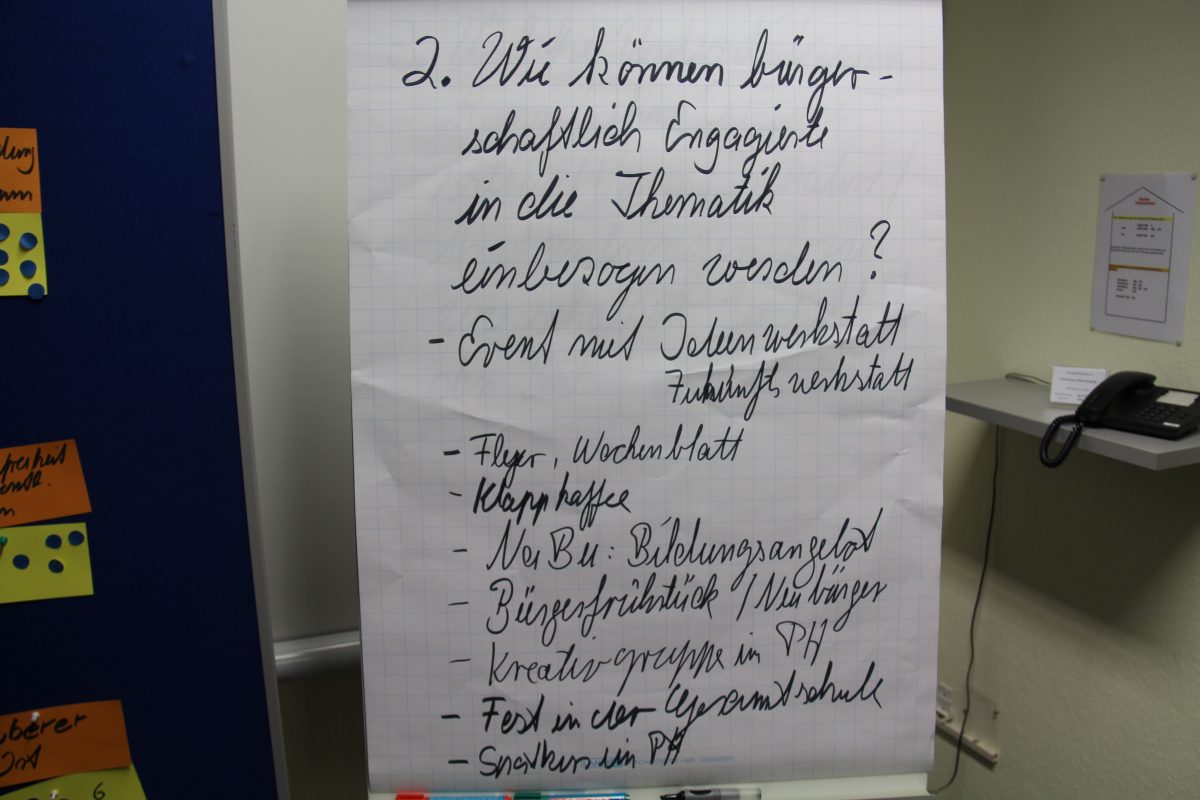 2. Wie können bürger-
schaftlich Engagierte
in die Thematik
einbezogen werden?
- Event mit Ideenwerkstatt
Zukunftswerkstatt
- Flyer, Wochenblatt
- Klappkaffee
- NaBu: Bildungsangebot
- Bürgerfrühstück / Neubürger
- Kreativgruppe in PH
- Fest in der Gesamtschule
- im PH
6